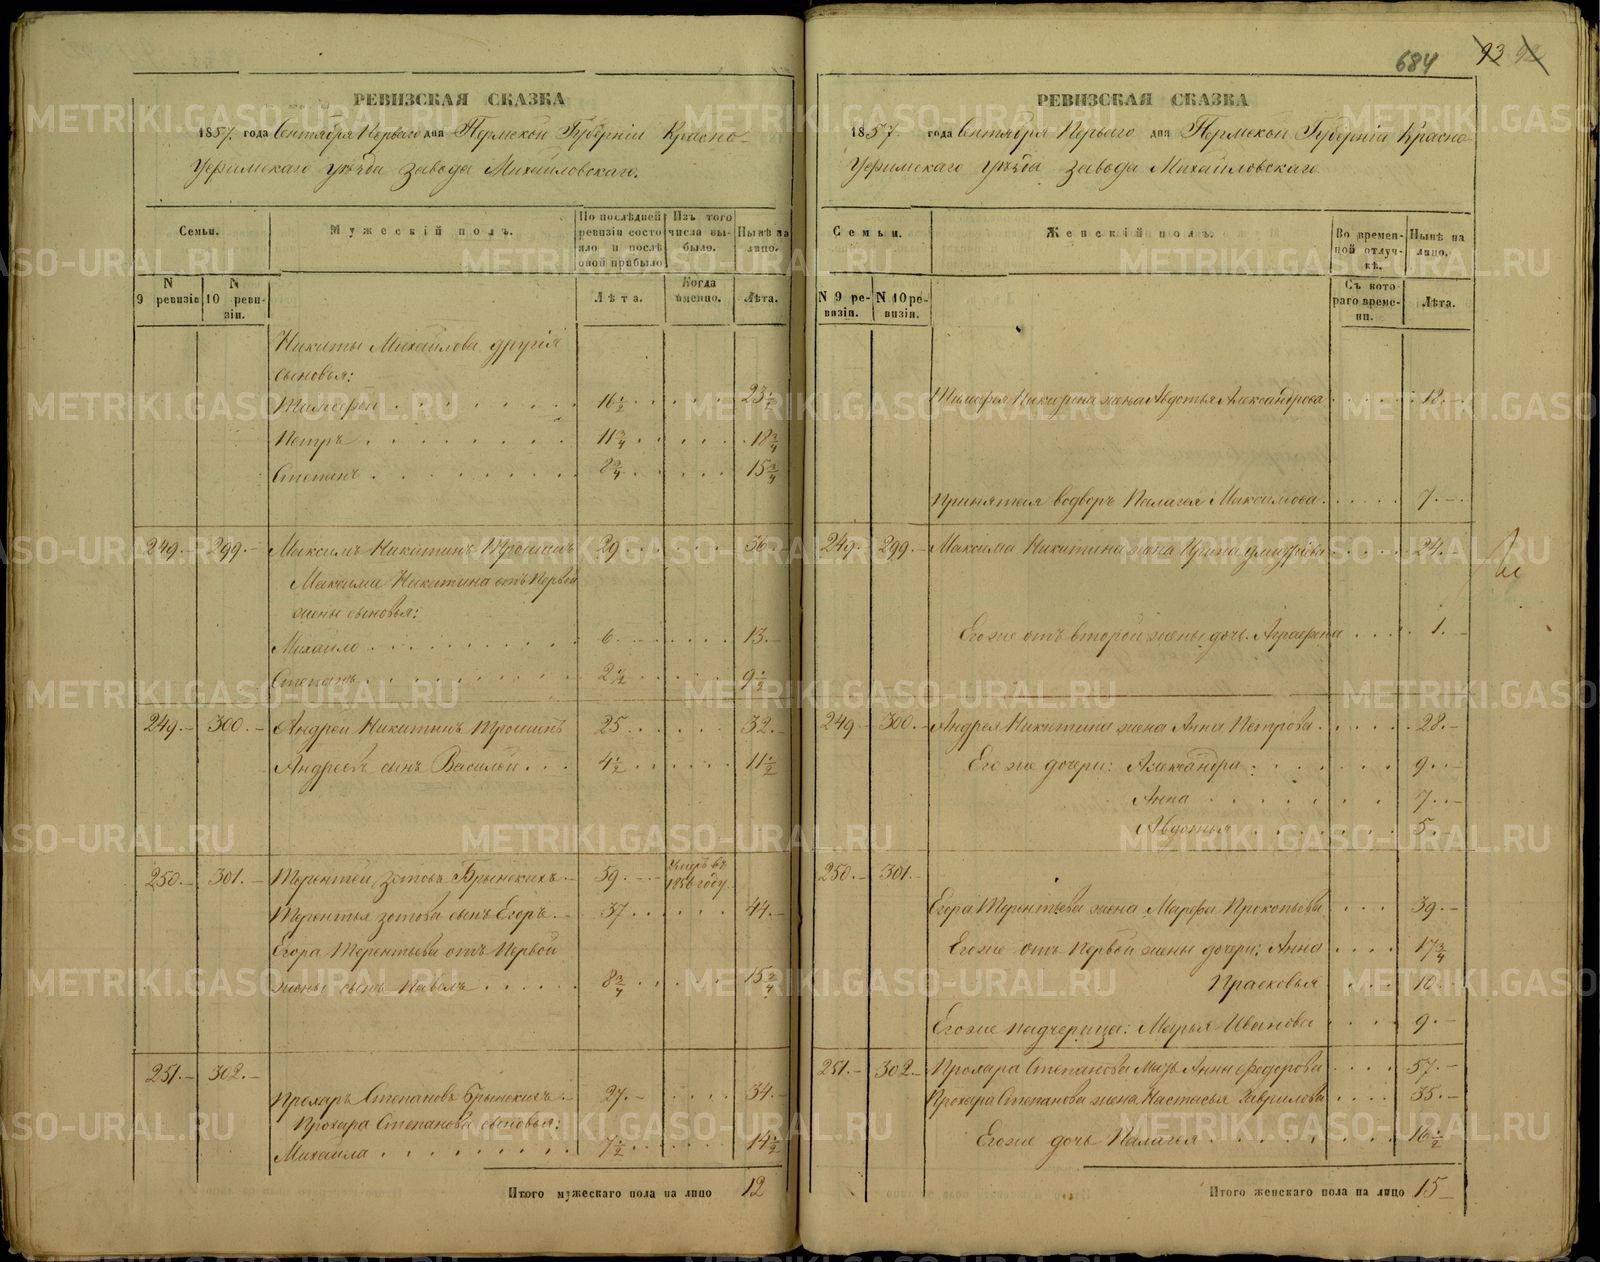 684 93 92
РЕВИЗСКАЯ СКАЗКА
1857. года Сентября Перваго дня Пермской Губерніи Красно-
Уфимскаго уѣзда завода Михайловскаго.
Семьи.
Мужескій полъ.
По послѣдней ревизіи состояло и послѣ оной прибыло
Изъ того числа выбыло.
Нынѣ на лицо.
N 9 ревизіи
N 10 ревизіи.
Лѣта.
Когда именно.
Лѣта.
Никиты Михайлова другія
сыновья:
Тимофей 16½ 23½
Петръ 11¾ 18¾
Степанъ 8¾ 15¾
249.- 299.- Максимъ Никитинъ Трошинъ 29 36
Максима Никитина отъ Первой
жены сыновья:
Михайло 6 13.-
Степанъ 2½ 9½
249.- 300.- Андрей Никитинъ Трошинъ 25 32.-
Андрея сынъ Василій 4½ 11½
250.- 301.- Терентей Зотовъ Брынскихъ 59 умеръ въ 1856 году
Терентья Зотова сынъ Егоръ 37 44.-
Егора Терентьева отъ Первой
жены сынъ Павелъ 8¾ 15¾
251.- 302.-
Прохаръ Степановъ Брынскихъ 27.- 34.-
Прохара Степанова сыновья:
Михаила 7½ 14½
Итого мужескаго пола на лицо 12
РЕВИЗСКАЯ СКАЗКА
1857. года Сентября Перваго дня Пермской Губерніи Красно-
Уфимскаго уѣзда завода Михайловскаго
Семьи.
Женскій полъ.
Во временной отлучкѣ.
Нынѣ на лицо.
N 9 ревизіи.
N 10 ревизіи.
Съ котораго времени.
Лѣта.
Тимофея Никитина жена Авдотья Александрова 18.-
Принятая водворъ Палагея Максимова 7.-
249.- 299.- Максима Никитина жена Ирина Дмитріева 24.-
Его же отъ второй жены дочь Аграфена 1.-
249 300.- Андрея Никитина жена Анна Петрова 28.-
Его же дочери: Александра 9.-
Анна 7.-
Авдотья 5.-
250.- 301.-
Егора Терентьева жена Марфа Прокопьева 39.-
Его же отъ первой жены дочери: Анна 17¾
Прасковья 10.-
Его же падчерица: Марья Иванова 9.-
251.- 302.- Прохара Степанова Мать Анна Федорова 57.-
Прохара Степанова жена Настасья Гаврилова 35.-
Его же дочь Палагея 16½
Итого женскаго пола на лицо 15
METRIKI.GASO-URAL.RU